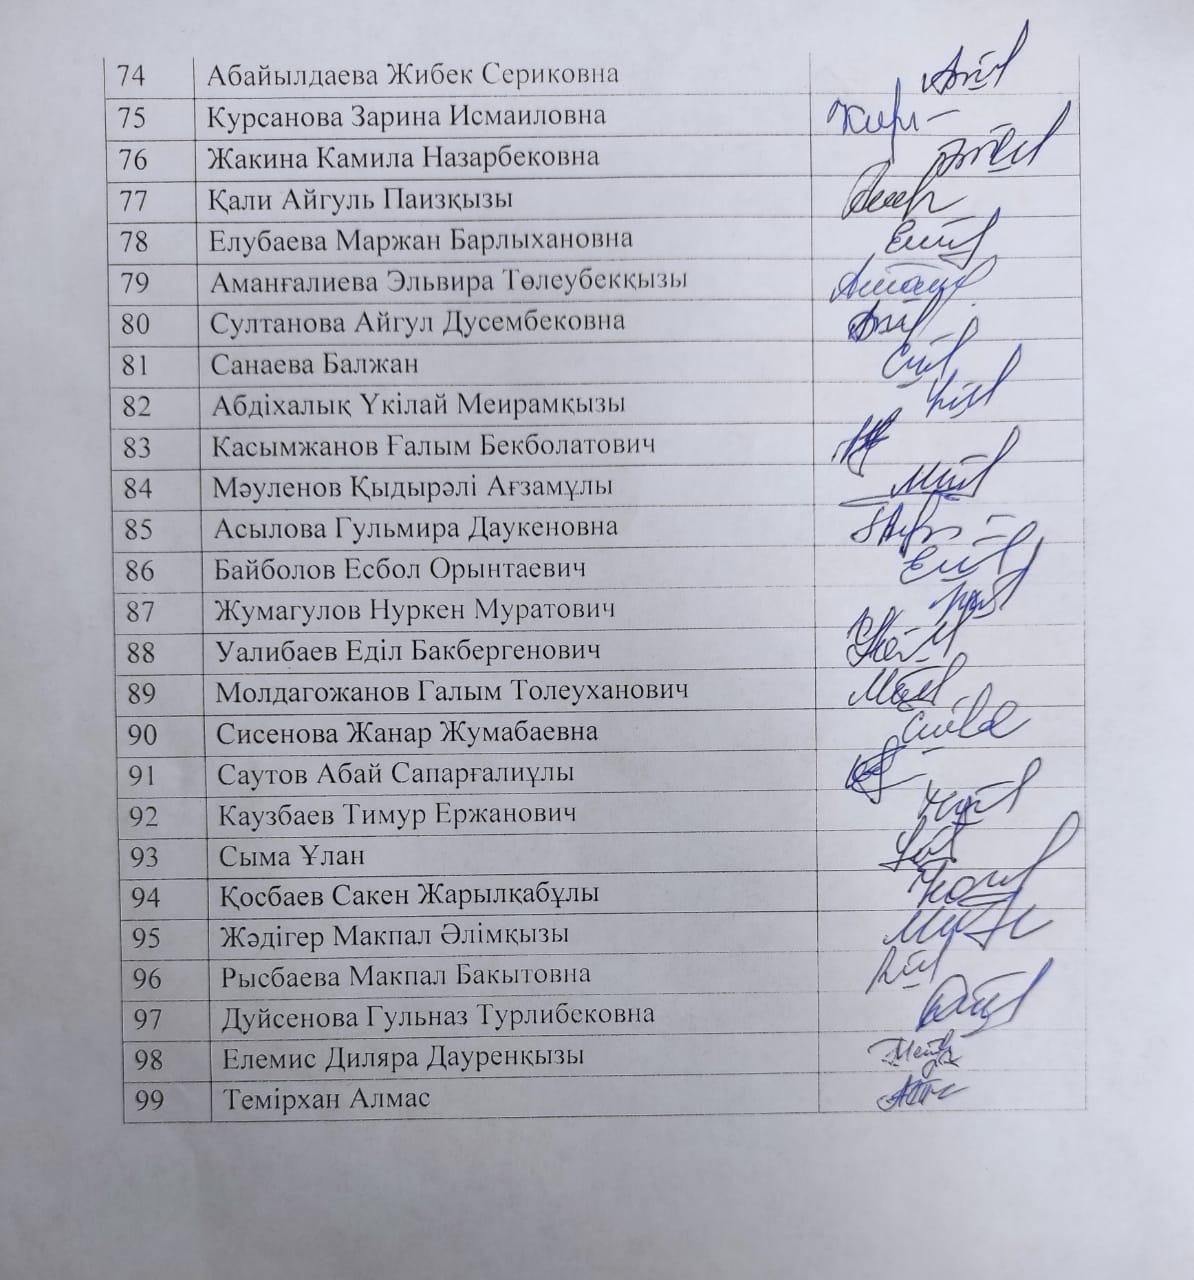 74 Абайылдаева Жибек Сериковна
75 Курсанова Зарина Исмаиловна
76 Жакина Камила Назарбековна
77 Қали Айгуль Паизқызы
78 Елубаева Маржан Барлыхановна
79 Аманғалиева Эльвира Төлеубекқызы
80 Султанова Айгул Дусембековна
81 Санаева Балжан
82 Абдіхалық Үкілай Меирамқызы
83 Касымжанов Ғалым Бекболатович
84 Мәуленов Қыдырәлі Ағзамұлы
85 Асылова Гульмира Даукеновна
86 Байболов Есбол Орынтаевич
87 Жумагулов Нуркен Муратович
88 Уалибаев Еділ Бакбергенович
89 Молдагожанов Галым Толеуханович
90 Сисенова Жанар Жумабаевна
91 Саутов Абай Сапарғалиұлы
92 Каузбаев Тимур Ержанович
93 Сыма Ұлан
94 Қосбаев Сакен Жарылқабұлы
95 Жәдігер Макпал Әлімқызы
96 Рысбаева Макпал Бакытовна
97 Дуйсенова Гульназ Турлибековна
98 Елемис Диляра Дауренқызы
99 Темірхан Алмас